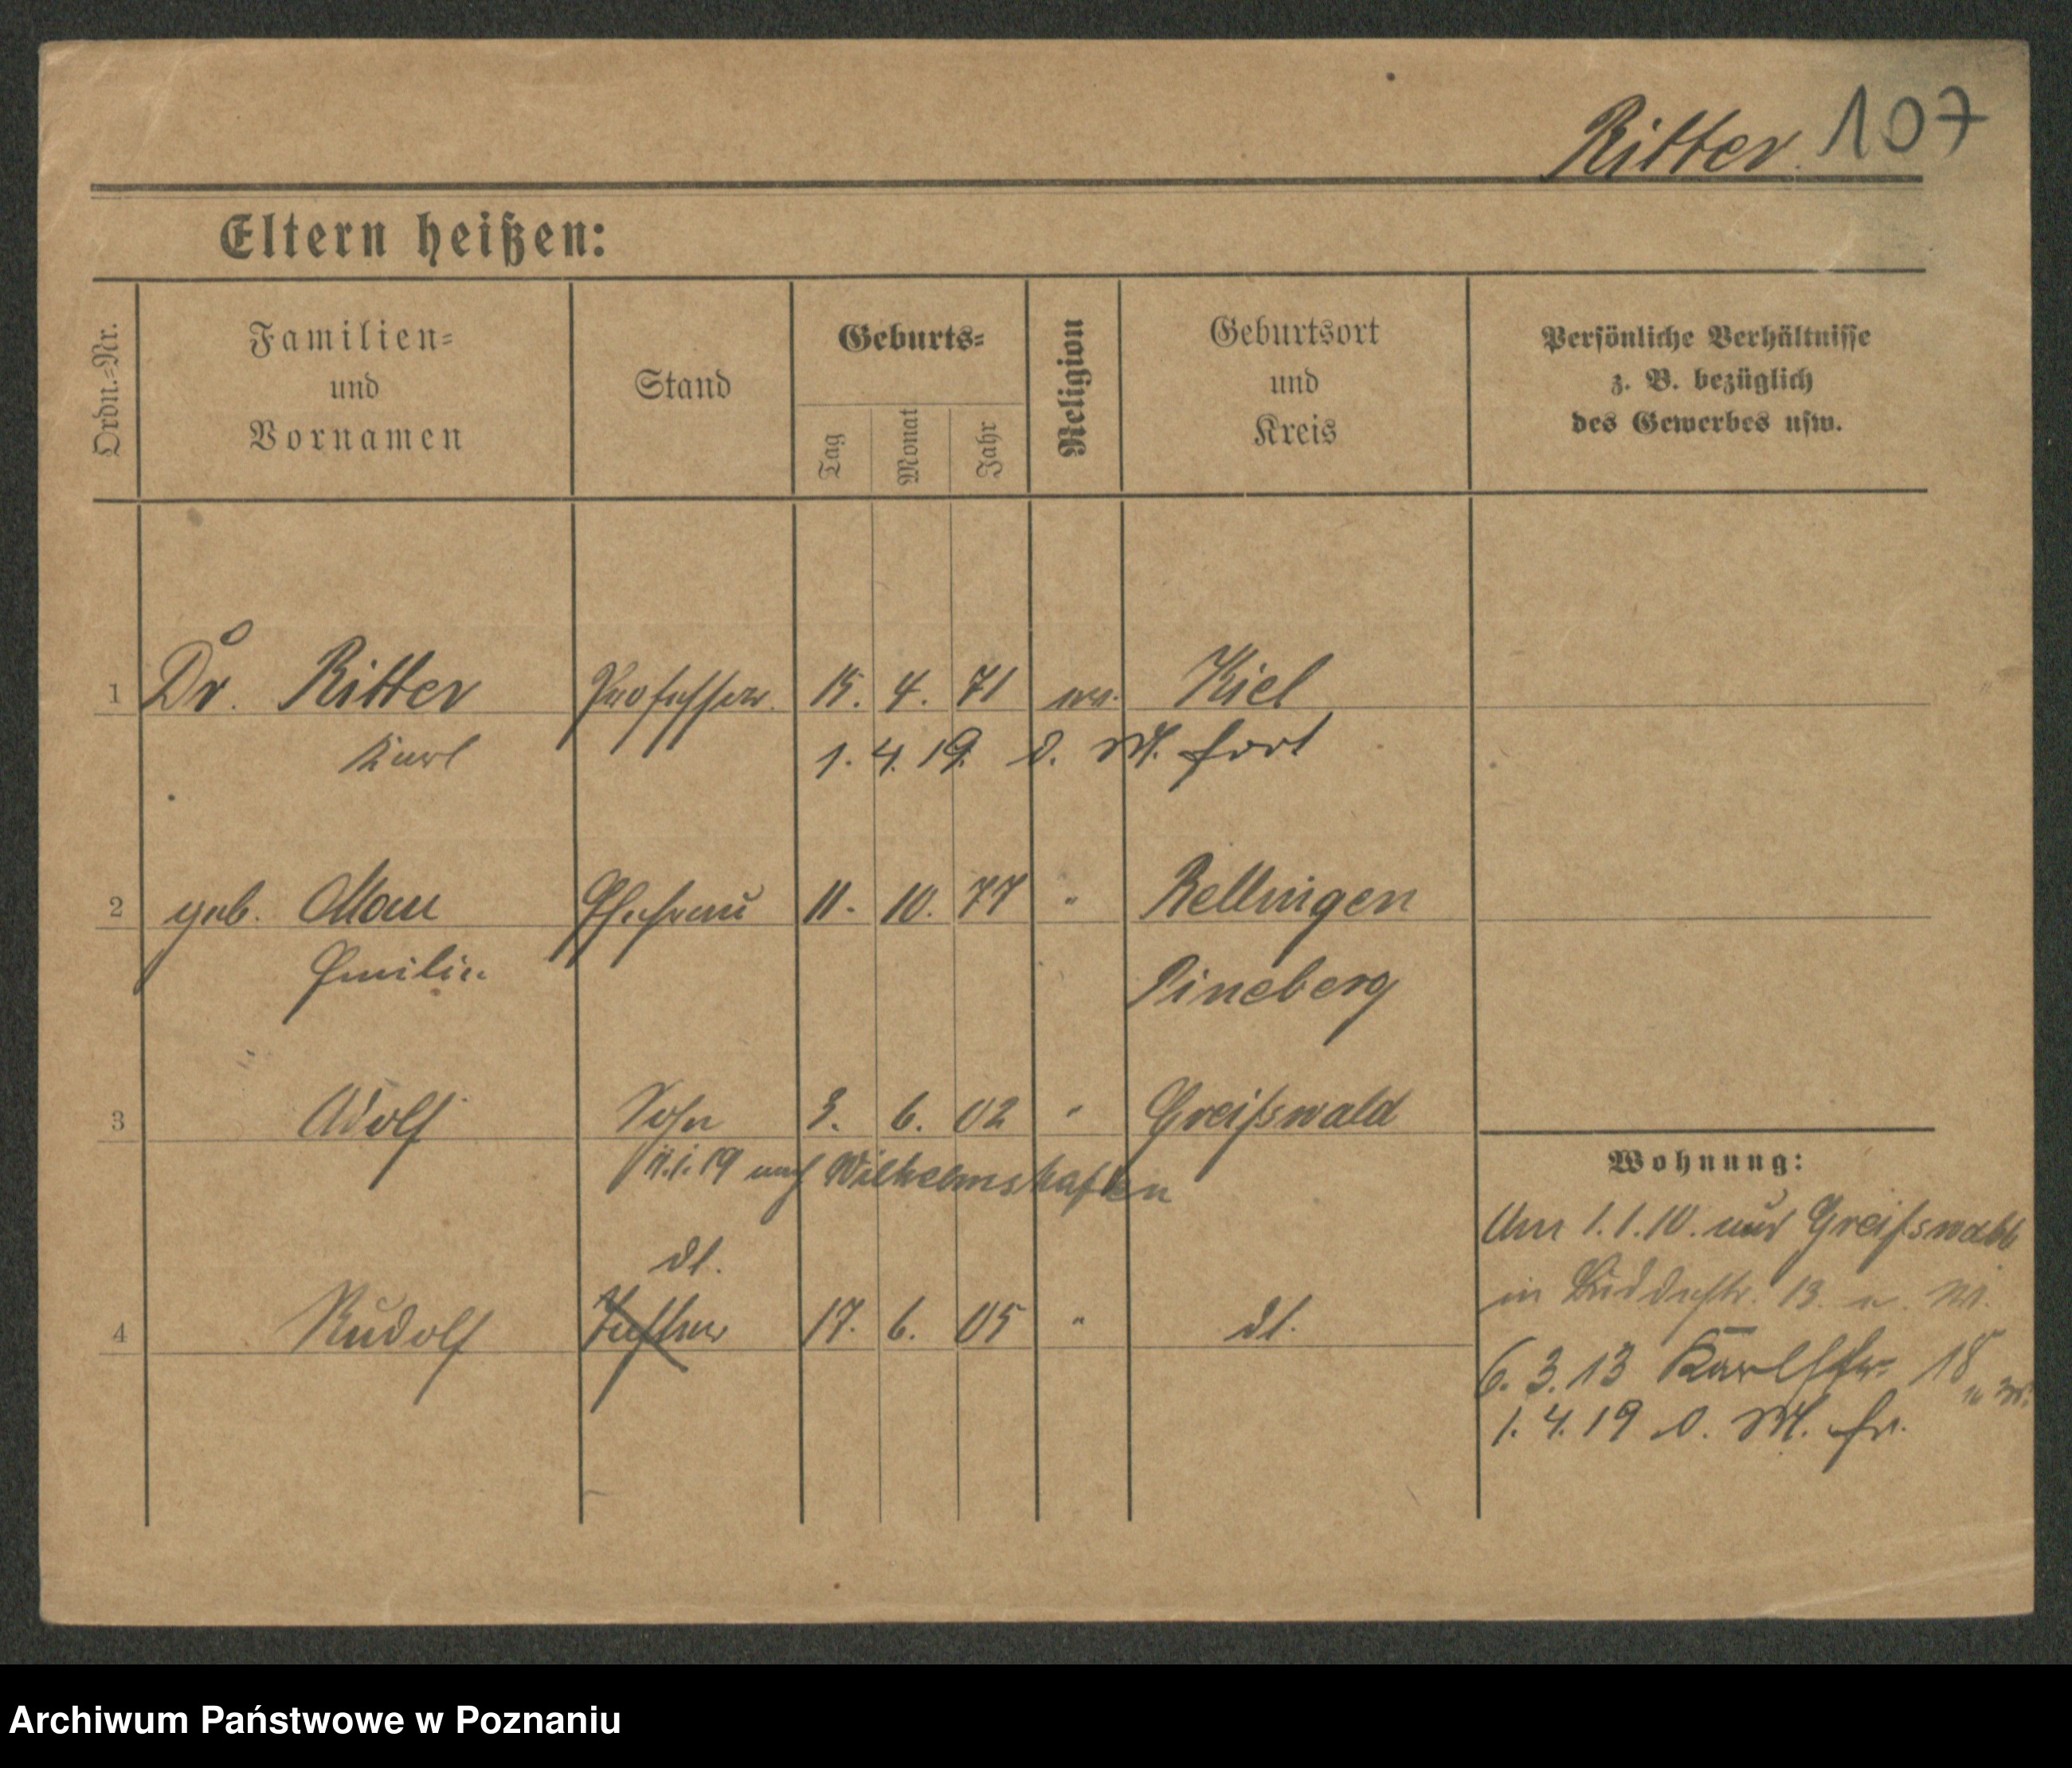 Ritter 107
Eltern heißen:
Ordn.-Nr.
Familien-
und
Vornamen
Stand
Geburts-
Tag
Monat
Jahr
Religion
Geburtsort
und
Kreis
Persönliche Verhältnisse
z. B. bezüglich
des Gewerbes usw.
1 Dr. Ritter Professor 15. 4. 71 ev. Kiel
Karl 1. 4. 19. o. M. fort
2 geb. Mau Ehefrau 11. 10. 77 " Rellingen
Emilie Pineberg
3 Adolf Sohn 3. 6. 02 " Greifswald
11.1.19 nach Wilkelmshafen
dl.
4 Rudolf 17. 6. 05 " dl.
Wohnung:
Am 1.1.10. aus Greifswald
in 13. a. W.
6. 3. 13 Karlstr. 18
1. 4. 19 o. M. fr.
Archiwum Państwowe w Poznaniu